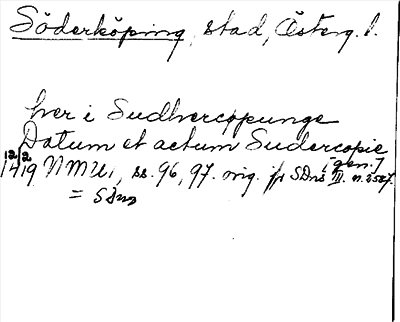 Söderköping, stad, Österg. l.
hver i Sudhercopunge
Datum et actum Sudercopie
[gen.]
12/2 1419 NMU1, ss. 96, 97. orig. jfr SDns III. n. 2567.
= SDns